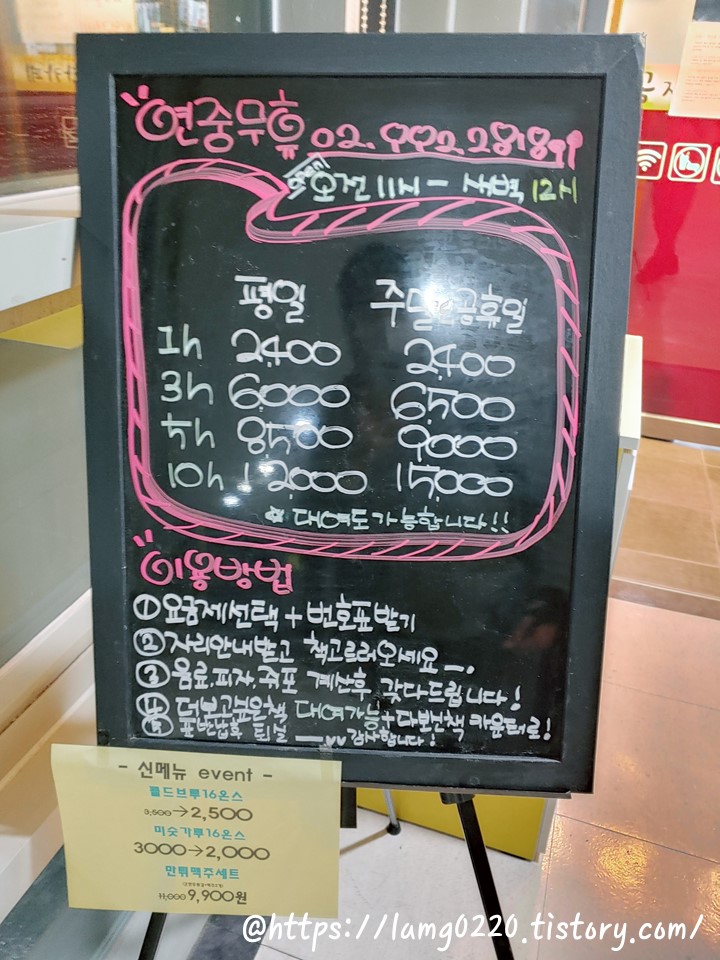 연중무휴 02.992.2818
open! 오전 11시 - 새벽 12시
평일 주말&공휴일
1h 2,400 2,400
3h 6,000 6,500
5h 8,500 9,000
10h 12,000 15,000
대여도 가능합니다!!
이용방법
① 요금제선택 + 번호표받기
② 자리안내받고 책고르러오세요
③ 음료,피자,쥐포 계산후 갖다드립니다!
④ 더보고싶은책 대여가능+다보신책 카운터로!
⑤ 표반납후 퇴실 감사합니다!
- 신메뉴 event -
콜드브루16온스
3,500→2,500
미숫가루16온스
3000→2,000
만튀맥주세트
11,000 9,900원
@https://lamg0220.tistory.com/